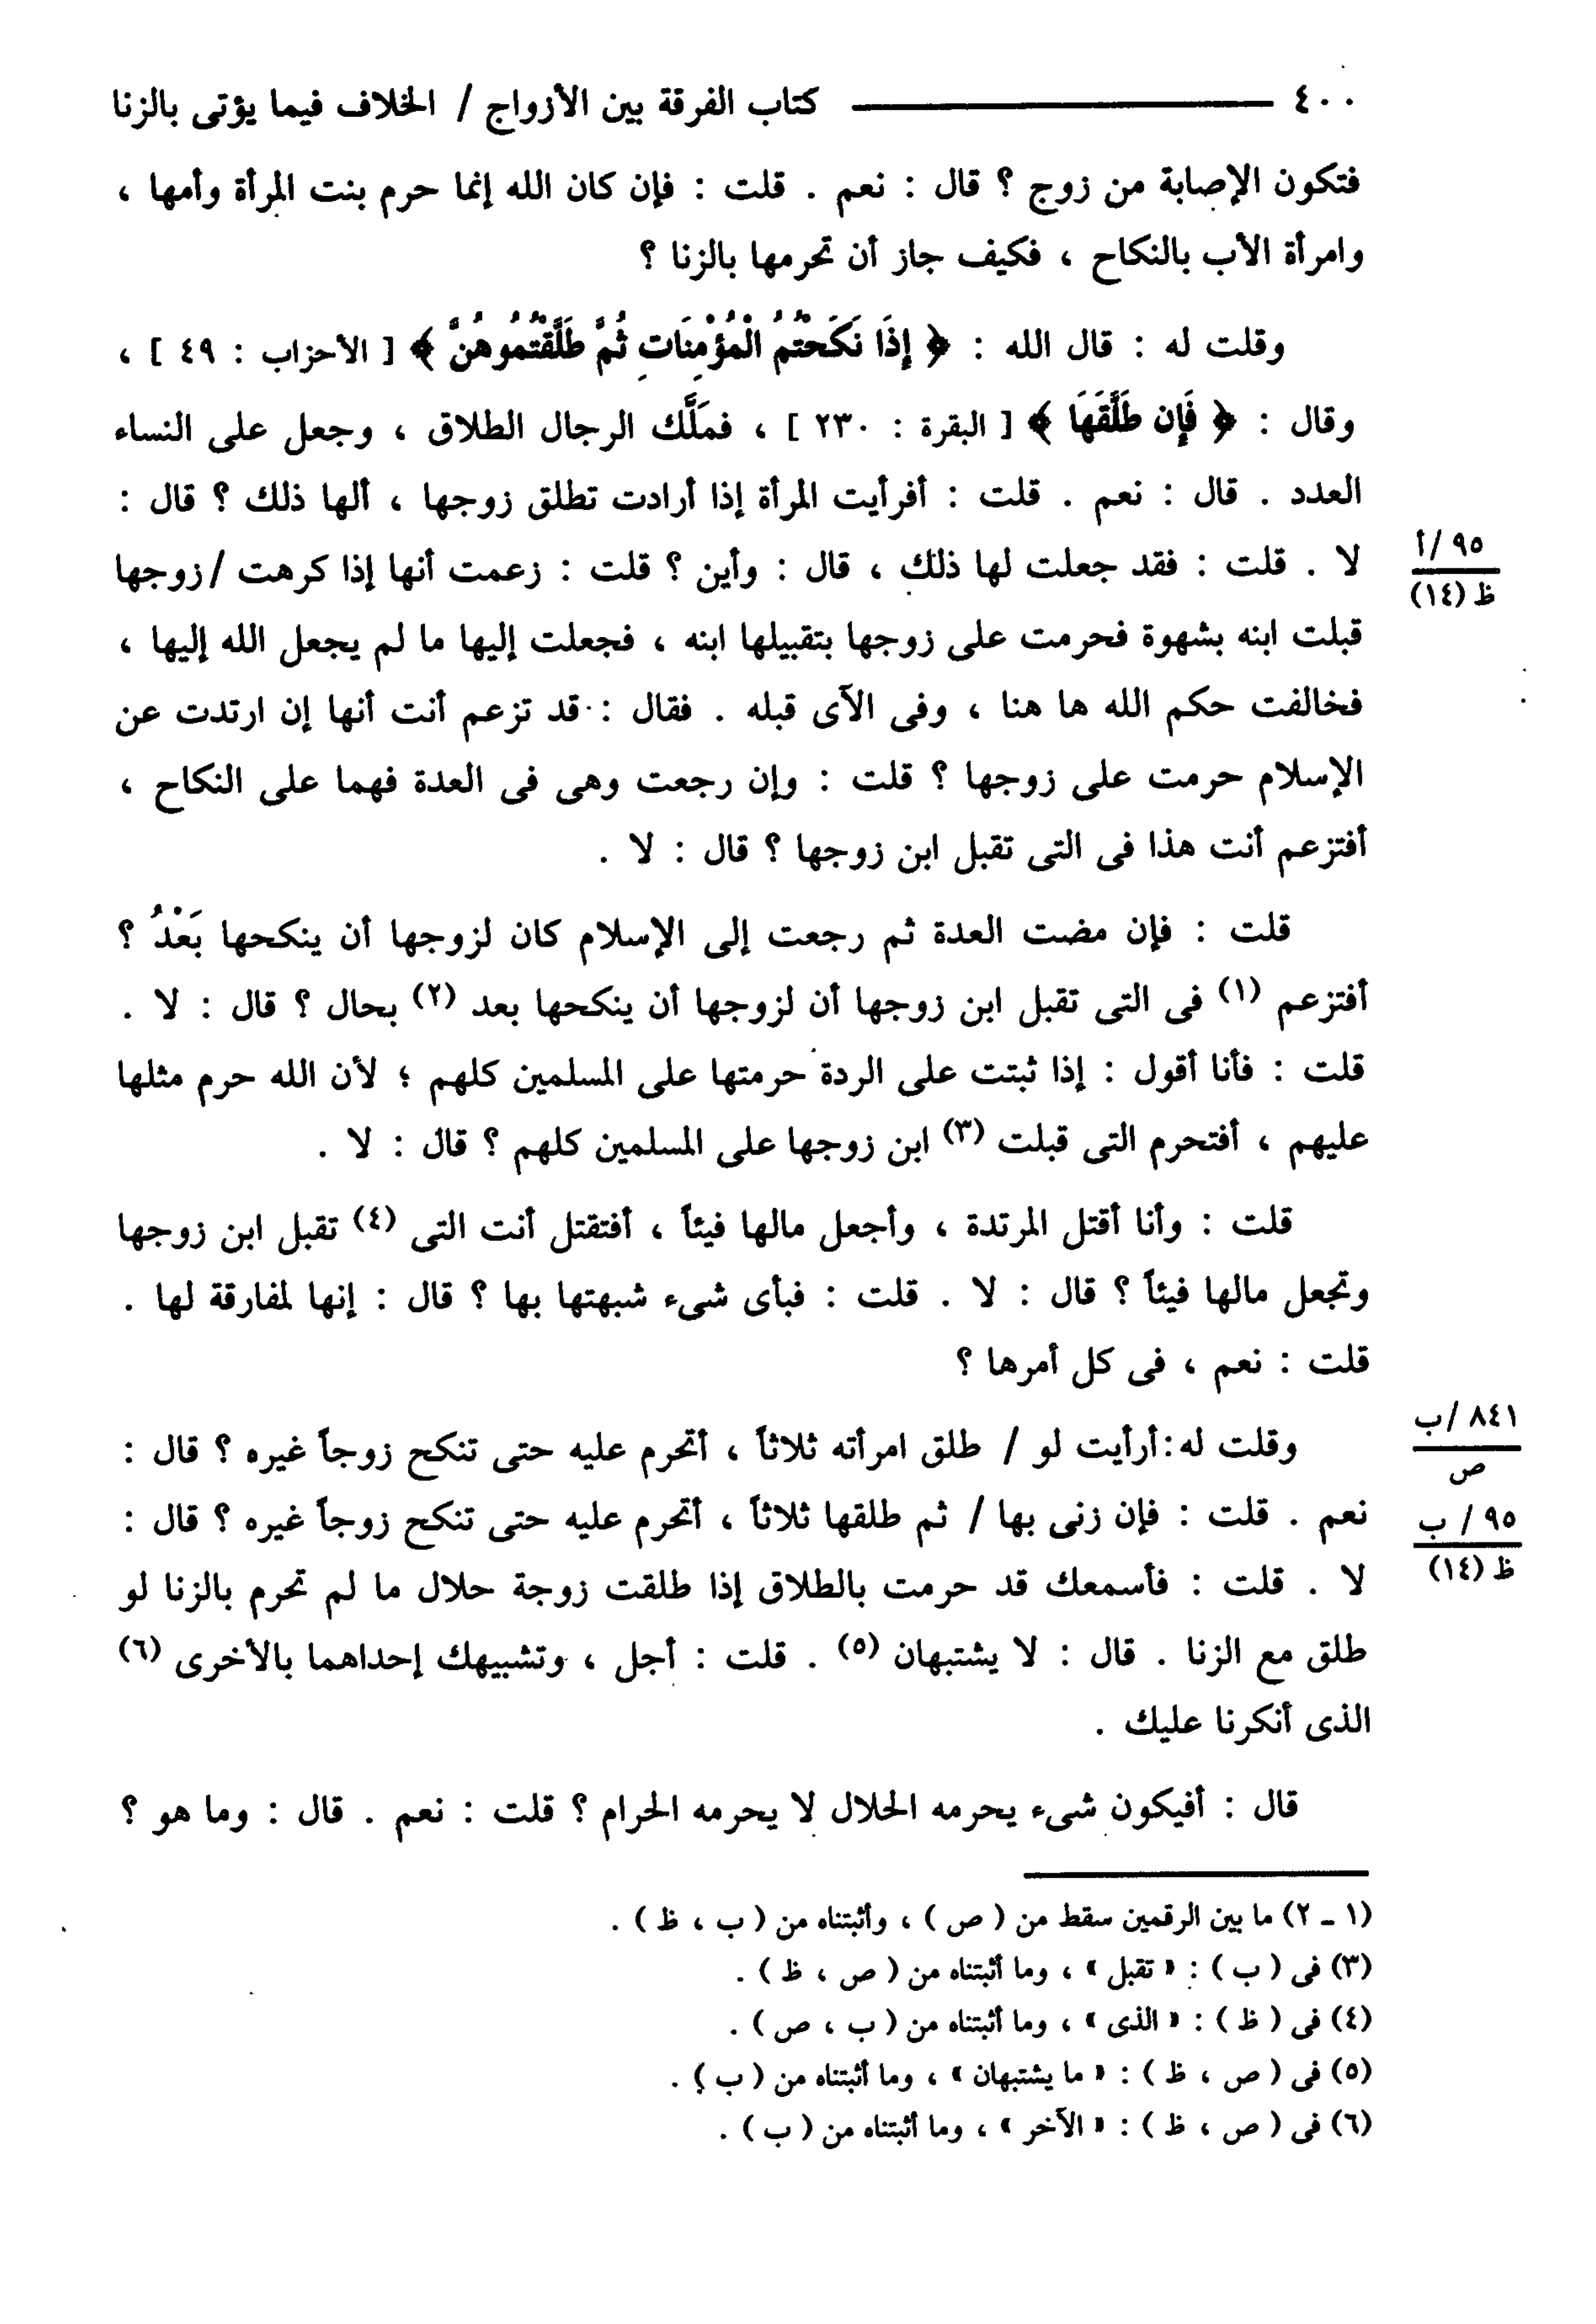 ٤٠٠ ــــــــــ كتاب الفرقة بين الأزواج / الخلاف فيما يؤتى بالزنا
فتكون الإصابة من زوج ؟ قال : نعم . قلت : فإن كان الله إنما حرم بنت المرأة وأمها ،
وامرأة الأب بالنكاح ، فكيف جاز أن تحرمها بالزنا ؟
وقلت له : قال الله : ﴿ إِذَا نَكَحْتُمُ الْمُؤْمِنَاتِ ثُمَّ طَلَّقْتُمُوهُنَّ ﴾ [ الأحزاب : ٤٩ ] ،
وقال : ﴿ فَإِن طَلَّقَهَا ﴾ [ البقرة : ٢٣٠ ] ، فملَّك الرجال الطلاق ، وجعل على النساء
العدد . قال : نعم . قلت : أفرأيت المرأة إذا أرادت تطلق زوجها ، ألها ذلك ؟ قال :
لا . قلت : فقد جعلت لها ذلك ، قال : وأين ؟ قلت : زعمت أنها إذا كرهت / زوجها
٩٥/ أ
ظ (١٤)
قبلت ابنه بشهوة فحرمت على زوجها بتقبيلها ابنه ، فجعلت إليها ما لم يجعل الله إليها ،
فخالفت حكم الله ها هنا ، وفى الآى قبله . فقال : قد تزعم أنت أنها إن ارتدت عن
الإسلام حرمت على زوجها ؟ قلت : وإن رجعت وهى فى العدة فهما على النكاح ،
أفتزعم أنت هذا فى التى تقبل ابن زوجها ؟ قال : لا .
قلت : فإن مضت العدة ثم رجعت إلى الإسلام كان لزوجها أن ينكحها بَعْدُ ؟
أفتزعم (١) فى التى تقبل ابن زوجها أن لزوجها أن ينكحها بعد (٢) بحال ؟ قال : لا .
قلت : فأنا أقول : إذا ثبتت على الردة حرمتها على المسلمين كلهم ؛ لأن الله حرم مثلها
عليهم ، أفتحرم التى قبلت (٣) ابن زوجها على المسلمين كلهم ؟ قال : لا .
قلت : وأنا أقتل المرتدة ، وأجعل مالها فيئاً ، أفتقتل أنت التى (٤) تقبل ابن زوجها
وتجعل مالها فيئاً ؟ قال : لا . قلت : فبأى شىء شبهتها بها ؟ قال : إنها لمفارقة لها .
قلت : نعم ، فى كل أمرها ؟
وقلت له : أرأيت لو / طلق امرأته ثلاثاً ، أتحرم عليه حتى تنكح زوجاً غيره ؟ قال :
٨٤١ /ب
ص
نعم . قلت : فإن زنى بها / ثم طلقها ثلاثاً ، أتحرم عليه حتى تنكح زوجاً غيره ؟ قال :
٩٥ / ب
ظ (١٤)
لا . قلت : فأسمعك قد حرمت بالطلاق إذا طلقت زوجة حلال ما لم تحرم بالزنا لو
طلق مع الزنا . قال : لا يشتبهان (٥) . قلت : أجل ، وتشبيهك إحداهما بالأخرى (٦)
الذى أنكرنا عليك .
قال : أفيكون شىء يحرمه الحلال لا يحرمه الحرام ؟ قلت : نعم . قال : وما هو ؟
(١ ـ ٢) ما بين الرقمين سقط من ( ص ) ، وأثبتناه من ( ب ، ظ ) .
(٣) فى ( ب ) : « تقبل » ، وما أثبتناه من ( ص ، ظ ) .
(٤) فى ( ظ ) : « الذى » ، وما أثبتناه من ( ب ، ص ) .
(٥) فى ( ص ، ظ ) : « ما يشتبهان » ، وما أثبتناه من ( ب ) .
(٦) فى ( ص ، ظ ) : « الآخر » ، وما أثبتناه من ( ب ) .